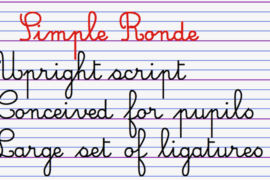 Simple Ronde
Upright script
Conceived for pupils
Large set of ligatures